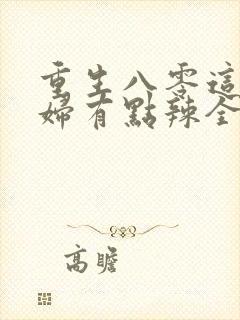 重生八零這
婦有點辣全
高瞻